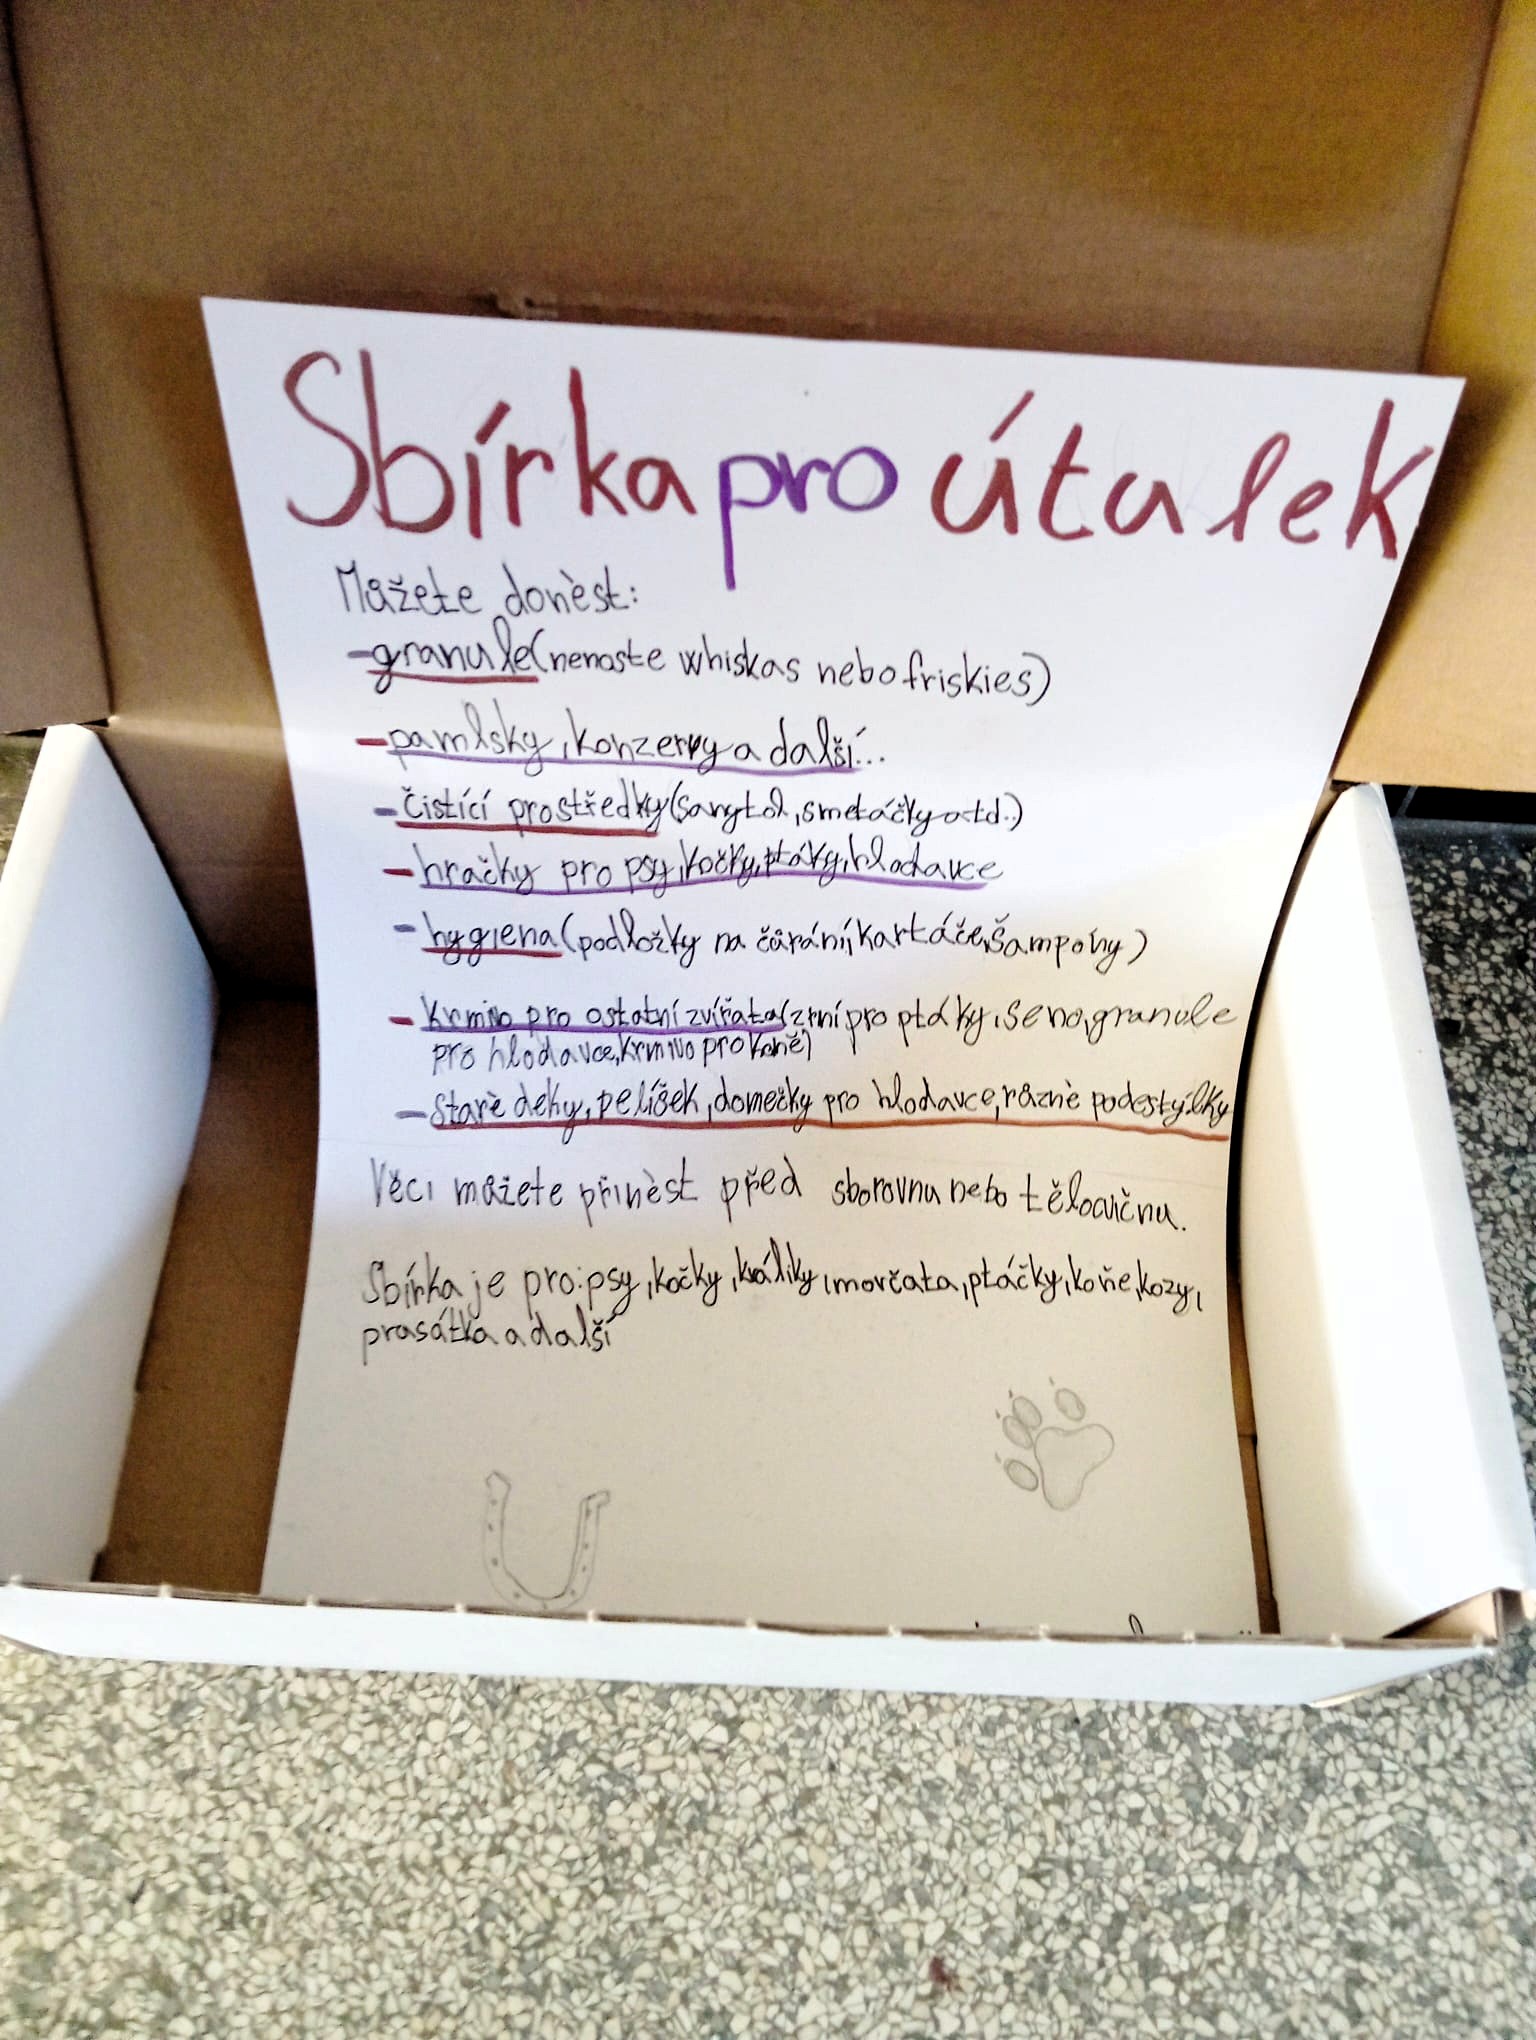 Sbírka pro útulek
Můžete donèst:
-granule(nenoste whiskas nebo friskies)
-pamlsky, konzervy a další...
-čistící prostředky(sanytol, smetáčky atd..)
-hračky pro psy, kočky, ptáky, hlodavce
-hygiena(podložky na čůrání, kartáče, šampóny)
-krmivo pro ostatní zvířata(zrní pro ptáky, seno, granule
pro hlodavce, krmivo pro koně)
-starè deky, pelíšek, domečky pro hlodavce, různè podestýlky
Věci můžete přinèst před sborovnu nebo tělocvičnu.
Sbírka je pro: psy, kočky, králíky, morčata, ptáčky, koňe, kozy,
prasátka a další